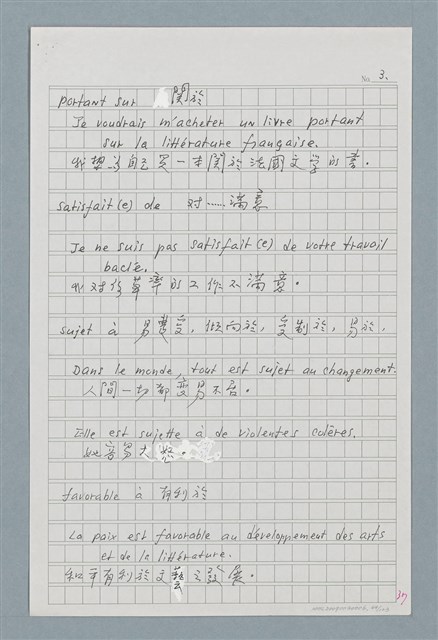 No. 3.
portant sur 關於
Je voudrais m'acheter un livre portant
sur la littérature française.
我想為自己買一本關於法國文學的書。
satisfait(e) de 对……滿意
Je ne suis pas satisfait(e) de votre travail
baclé.
我对你草率的工作不滿意。
sujet à 易遭受,傾向於,受制於,易於,
Dans le monde, tout est sujet au changement.
人間一切都變易不居。
Elle est sujette à de violentes colères.
她容易大怒。
favorable à 有利於
La paix est favorable au développement des arts
et de la littérature.
和平有利於文藝之發展。